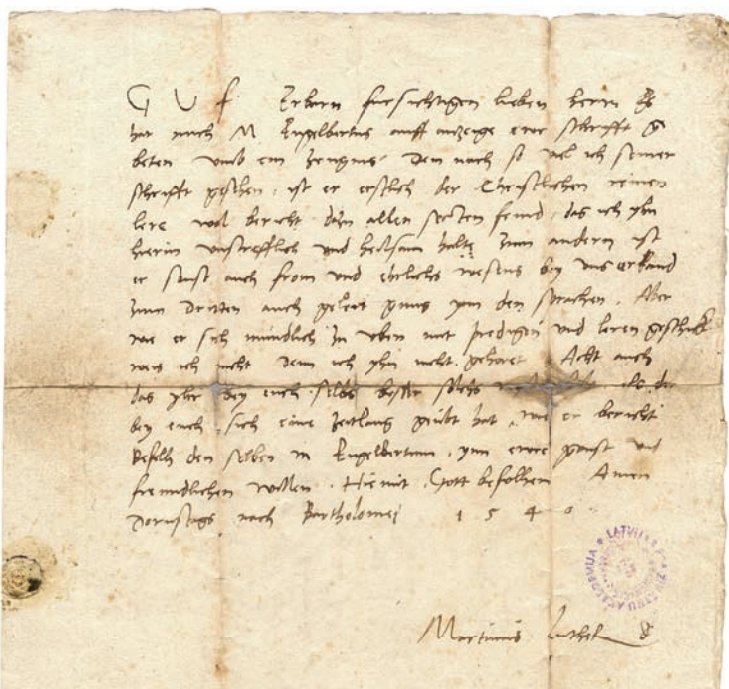 G V f Erbarn fursichtigen lieben herrn Es
hat mich M Engelbertus auff anzeige ewr schrifft ge
beten umb ein zeugnis Dem nach so viel ich seiner
schrifft gesehen, ist er erstlich der Christlichen reinen
lere wol bericht dazu allen secten feind, das ich yhn
hierin unstrefflich und heilsam halte Zum andern ist
er sonst auch from und ehrlichs wesens bey uns erkand
zum dritten auch gelert gnug ynn den sprachen, Aber
wie er sich mundlich zu uben mit predigen und leren geschickt
weis ich nicht Denn ich yhn nicht gehoret Acht auch
das yhr bey euch selbs besser solchs als der
bey euch sich eine zeitlang geubt hat, wie er bericht
Befelh den selben M Engelbertum ynn ewre gonst und
freundlichen willen, Hiemit Gott befolhen Amen
Dornstags nach Bartholomei 1540
LATVIJAS ZINĀTŅU AKADEMIJA
Martinus Luther